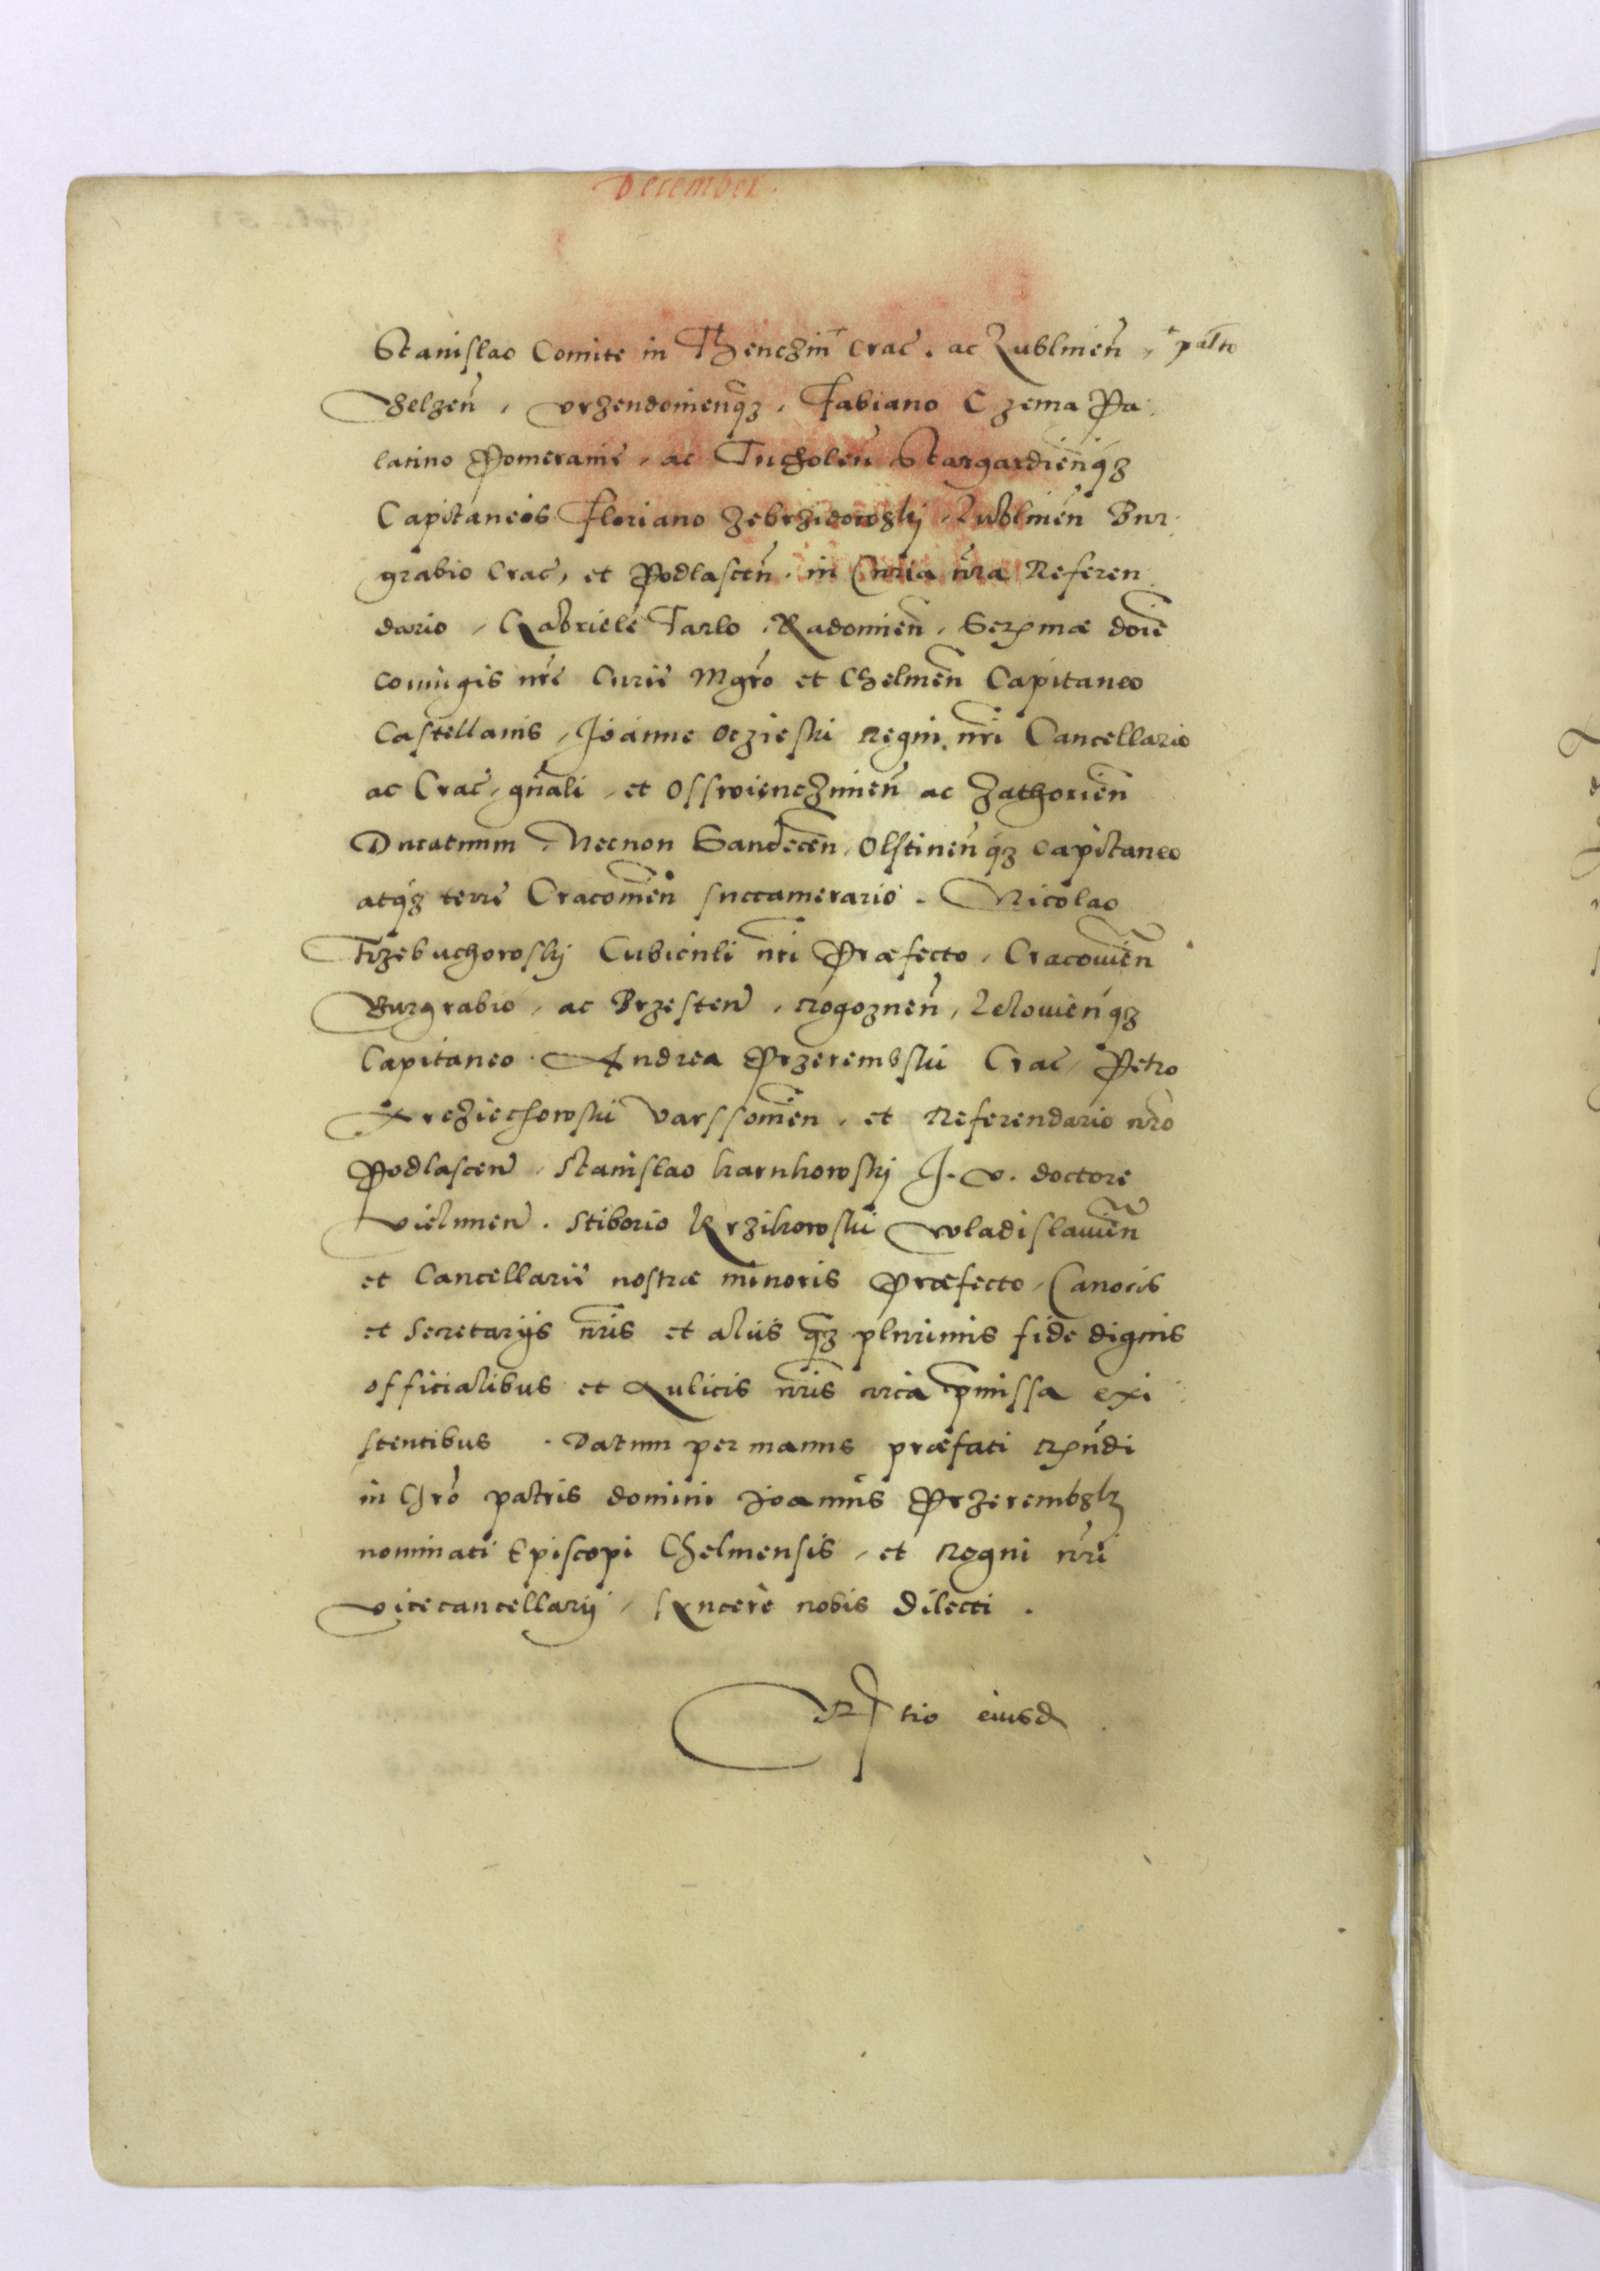 December.
Stanislao Comite in Thenczin crac̃. ac Lublinen̄, palto
Belzen̄, Vrzendouien̄qꝫ, Fabiano Czema Pa
latino Pomeranie, ac Tucholen̄ Stargardien̄qꝫ
Capitaneis Floriano Zebrzidowskij Lublinen̄ Bur
grabio Crac̃, et Podlascen̄. in Curia nr̄a Referen
dario, Gabriele Tarlo, Radomien̄, Serẽmæ doīe
coniugis nr̄e Curie Mgr̄o et Chelmen̄ Capitaneo
Castellanis, Joanne Oczieski Regni nr̄i Cancellario
ac Crac̃, gn̄ali, et Osswienczimen̄ ac Zathorien̄
Ducatuum Necnon Sandecen̄, Olstinen̄qꝫ capitaneo
atqꝫ terre Cracouien̄ succamerario. Nicolao
Trzebuchowskij Cubiculi nr̄i Præfecto, Cracouien̄
Burgrabio, ac Brzesten̄, Rogoznen̄, Lelouien̄qꝫ
Capitaneo. Andrea Przerembski Crac̃, Petro
Arcziechowski Varssouien̄, et Referendario nr̄o
Podlascen̄, Stanislao Karnkowskj J. V. doctore
Vielunen̄. Stiborio Krzikowski Wladislauien̄
et Cancellarie nostræ minoris Præfecto, Canocis
et Secretarijs nr̄is et alijs qꝫ plurimis fide dignis
officialibus et Aulicis nr̄is circa p̄missa exi
stentibus. Datum per manus præfati Rẽndi
in Chr̄o patris domini Joannis Przerembskj
nominati Episcopi Chelmensis, et Regni nr̄i
Vicecancellarij, syncere nobis dilecti.
Rtio eiusd